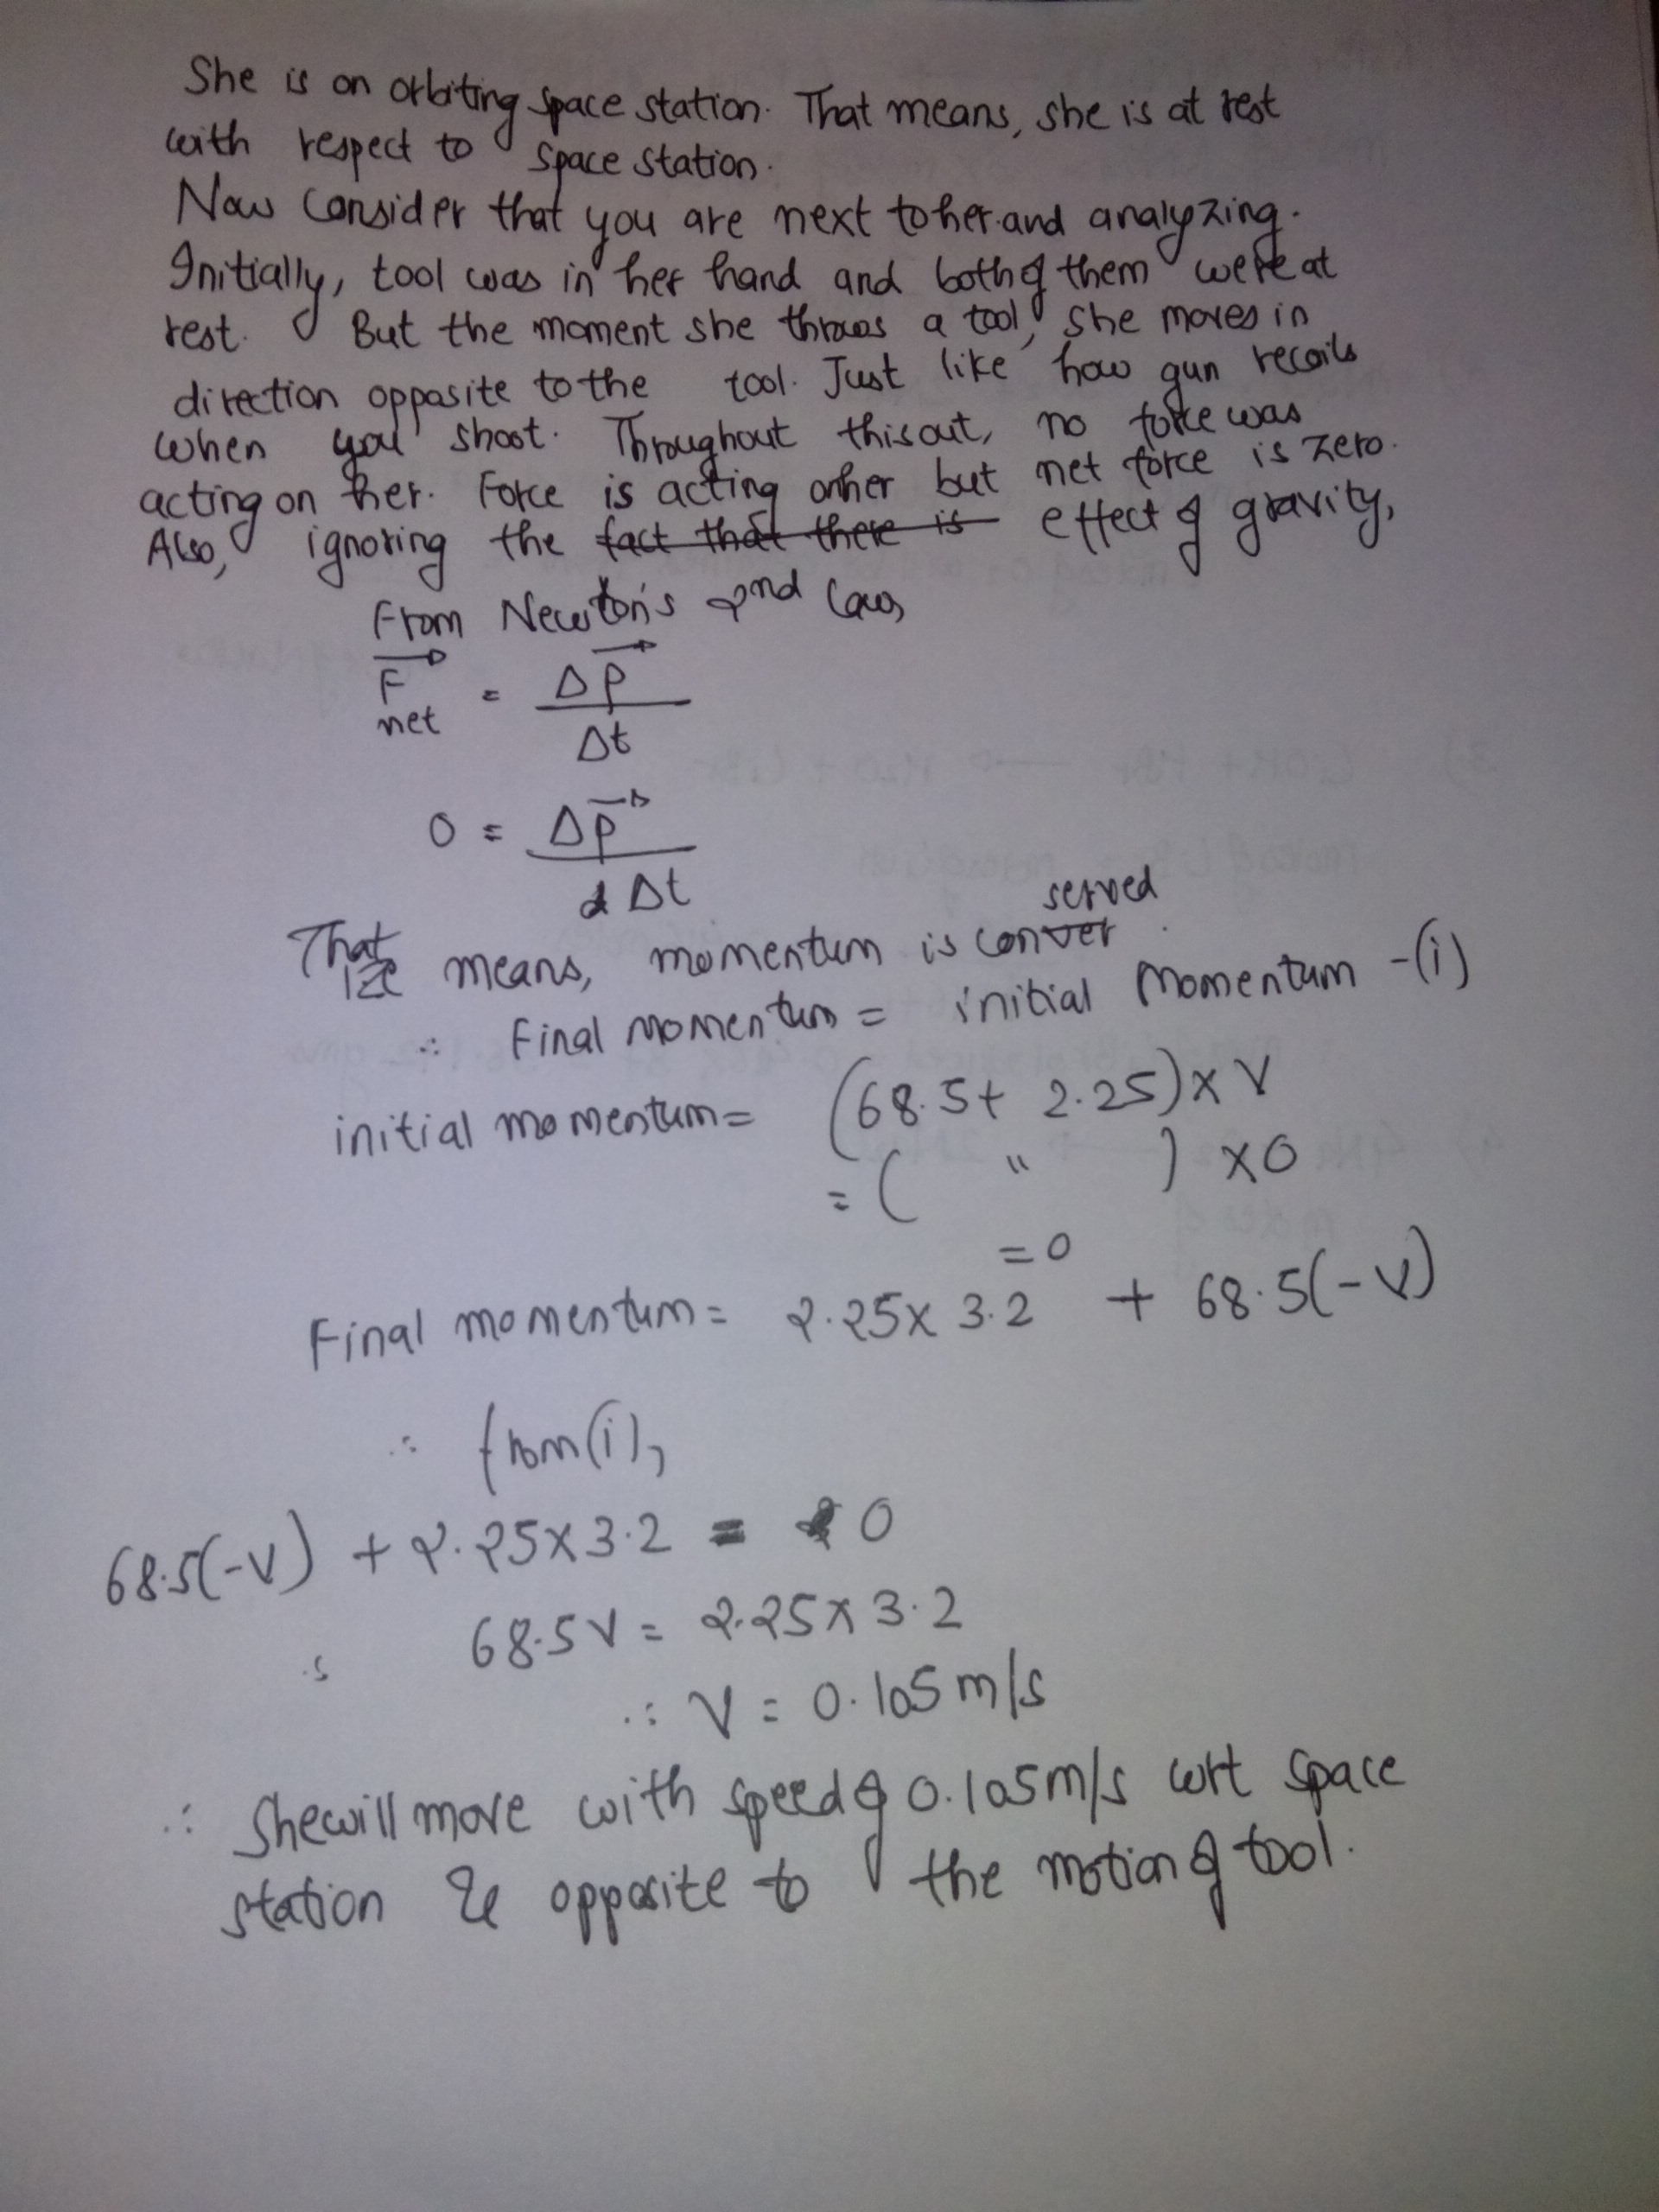 She is on orbiting space station. That means, she is at rest
with respect to space station.
Now consider that you are next to her and analyzing.
Initially, tool was in her hand and both of them were at
rest. But the moment she throws a tool, she moves in
direction opposite to the tool. Just like how gun recoils
when you shoot. Throughout this out, no force was
acting on her. Force is acting on her but net force is zero.
Also, ignoring the fact that there is effect of gravity,
From Newton's 2nd law,
F net = Δp / Δt
0 = Δp / Δt
served
That means, momentum is conver.
∴ Final momentum = initial momentum -(i)
initial momentum = (68.5 + 2.25) × V
= ( " ) × 0
= 0
Final momentum = 2.25 × 3.2 + 68.5(-V)
∴ from (i),
68.5(-V) + 2.25 × 3.2 = 0
68.5V = 2.25 × 3.2
∴ V = 0.105 m/s
∴ She will move with speed of 0.105 m/s wrt space
station & opposite to the motion of tool.